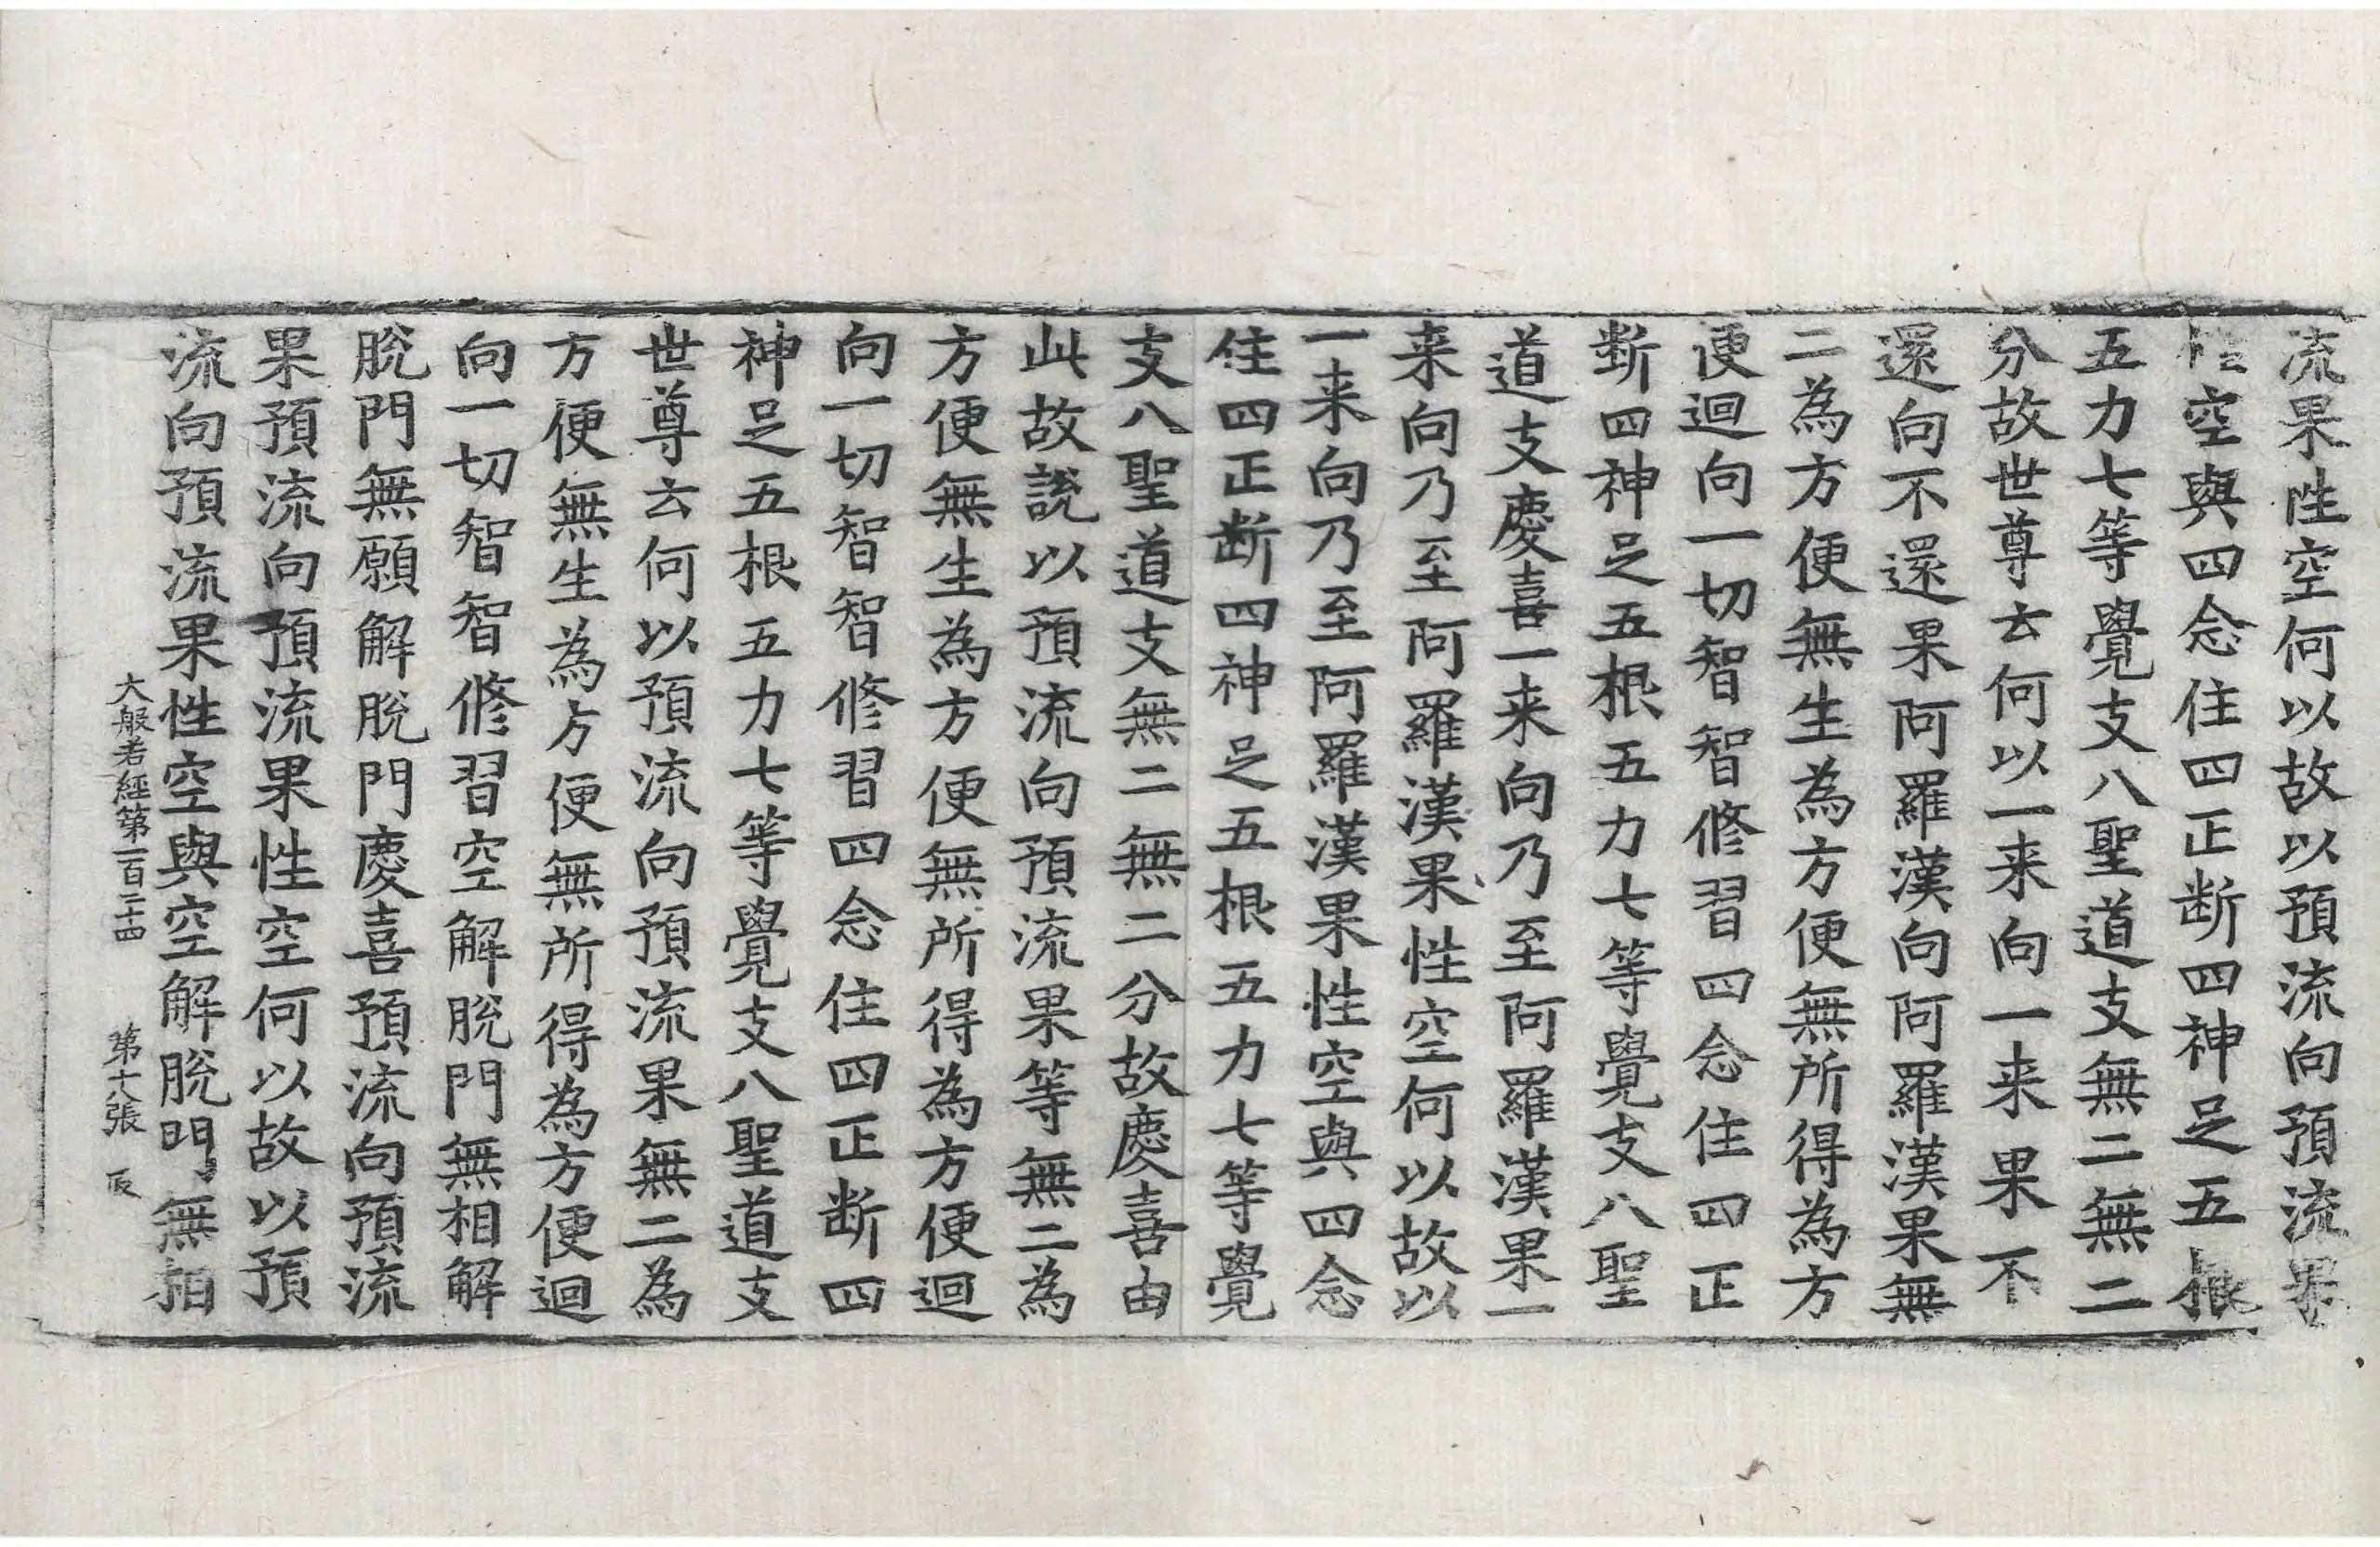 流果性空何以故以預流向預流果
性空與四念住四正断四神足五根
五力七等覺支八聖道支無二無二
分故世尊云何以一来向一来果不
還向不還果阿羅漢向阿羅漢果無
二為方便無生為方便無所得為方
便迴向一切智智修習四念住四正
断四神足五根五力七等覺支八聖
道支慶喜一来向乃至阿羅漢果一
来向乃至阿羅漢果性空何以故以
一来向乃至阿羅漢果性空與四念
住四正断四神足五根五力七等覺
支八聖道支無二無二分故慶喜由
此故說以預流向預流果等無二為
方便無生為方便無所得為方便迴
向一切智智修習四念住四正断四
神足五根五力七等覺支八聖道支
世尊云何以預流向預流果無二為
方便無生為方便無所得為方便迴
向一切智智修習空解脫門無相解
脫門無願解脫門慶喜預流向預流
果預流向預流果性空何以故以預
流向預流果性空與空解脫門無相
大般若經第一百二十四 第十八張